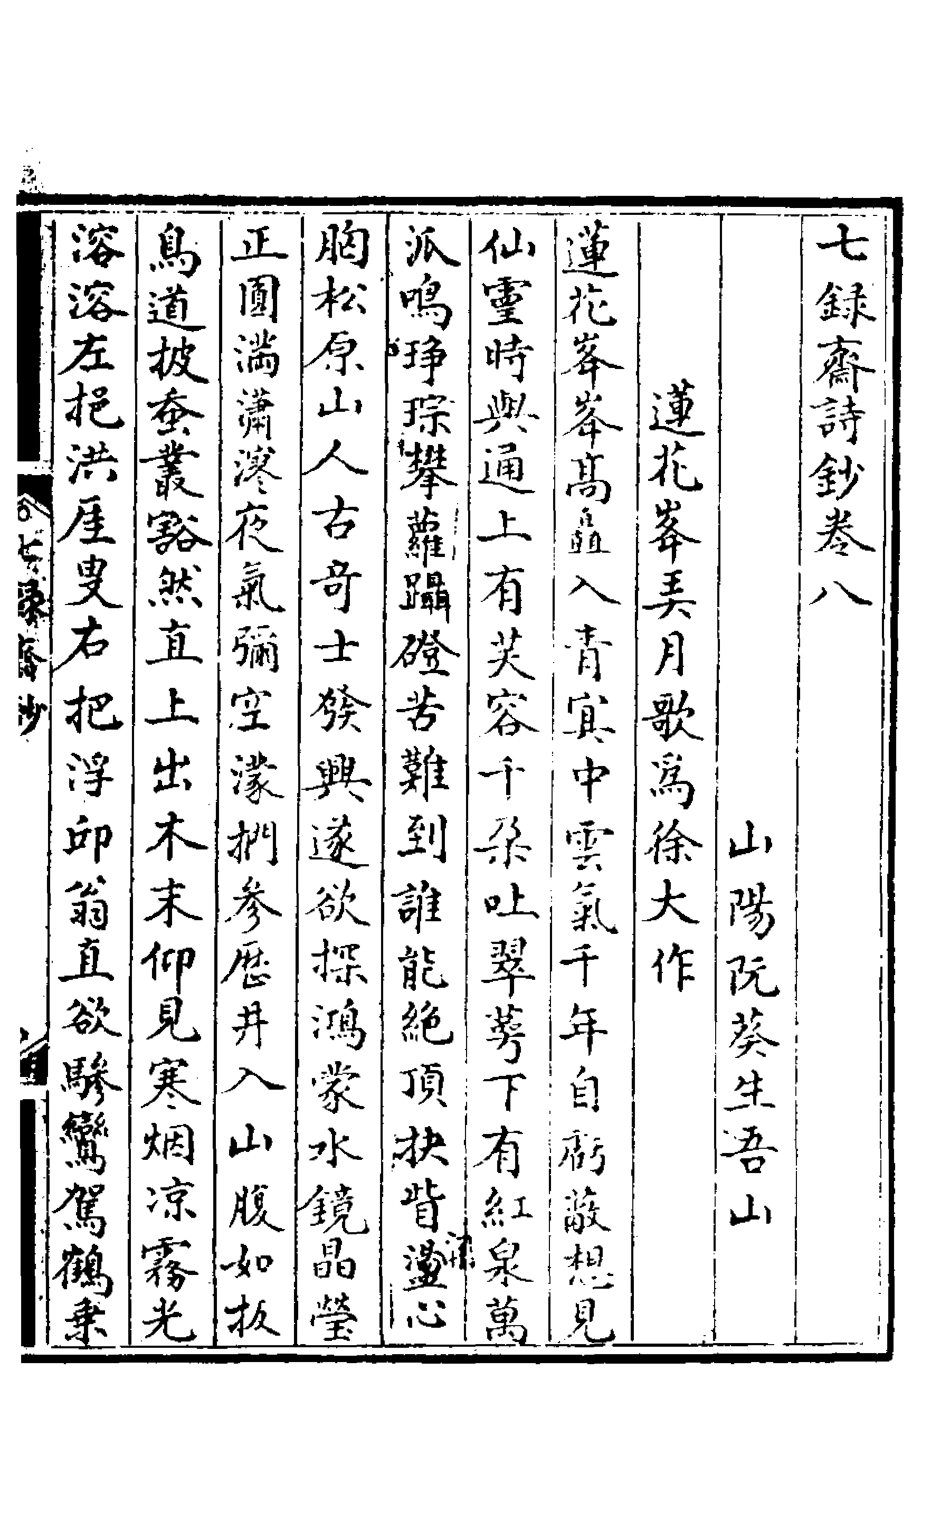 七録齋詩鈔卷八
山陽阮葵生吾山
蓮花峯弄月歌爲徐大作
蓮花峯峯高矗入青冥中雲氣千年自虧蔽想見
仙靈時與通上有芙容千朶吐翠萼下有紅泉萬
派鳴琤琮攀蘿躡磴苦難到誰能絶頂抉眥盪心
胸松原山人古奇士發興遂欲探鴻蒙水鏡晶瑩
正圓滿瀟寥夜氣彌空濛捫參歴井入山腹如扳
鳥道披蚕叢豁然直上出木末仰見寒烟凉霧光
溶溶左挹洪厓叟右把浮邱翁直欲驂鸞駕鶴乗
七録齋鈔